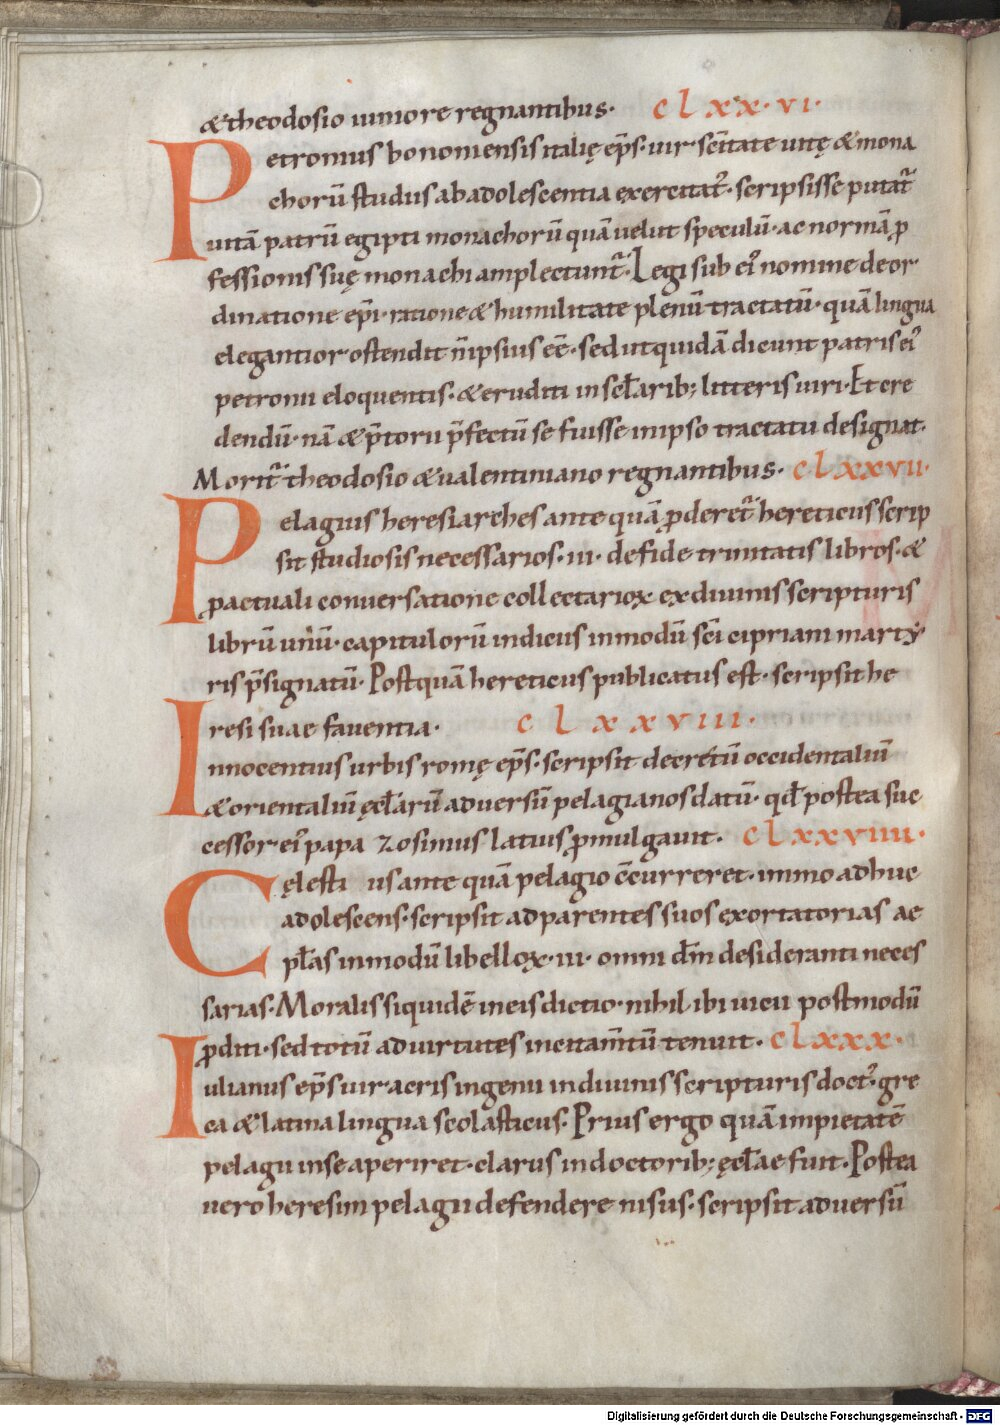 & theodosio iuniore regnantibus· clxx·vi·
Petronius bononiensis italię ep̄s· uir· sc̄itate uitę & mona
chorū studiis ab adolescentia exercitat᷒· scripsisse putat᷒
uitā patrū egipti monachorū quā uelut speculū· ac normā ꝓ
fessionis suę monachi amplectunt᷒· Legi sub ei᷒ nomine de or
dinatione ep̄i· ratione & humilitate plenū tractatū· quā lingua
elegantior ostendit n̄ ipsius ēē· sed ut quidā dicunt patris ei᷒
petronii eloquentis· & eruditi in scł̄arib; litteris uiri· Et cre
dendū· nā & p̄torii p̄fectū se fuisse in ipso tractatu designat·
Morit᷒ theodosio & ualentiniano regnantibus· clxxvii·
Pelagius heresiarches ante quā ꝓderet᷒ hereticus scrip
sit studiosis necessarios· iii· de fide trinitatis libros· &
ꝓ actuali conuersatione collectarioꝝ ex diuinis scripturis
librū unū· capitulorū indiciis in modū sc̄i cipriani marty
ris p̄signatū· Postquā hereticus publicatus est· scripsit he
resi suae fauentia· clxxviii·
Innocentius urbis romę ep̄s· scripsit decretū occidentaliū
& orientaliū ęcł̄arū aduersū pelagianos datū· qđ postea suc
cessor ei᷒ papa zosimus latius ꝓmulgauit· clxxviiii·
Cęlesti us ante quā pelagio c̄curreret· immo adhuc
adolescens· scripsit ad parentes suos exortatorias ac
pł̄as in modū libelloꝝ· iii· omni dm̄ desideranti neces
sarias· Moralis siquidē in eis dictio· nihil ibi uicii postmodū
ꝓditi· sed totū ad uirtutes incitam̄tū tenuit· clxxx·
Iulianus ep̄s uir acris ingenii in diuinis scripturis doct᷒· gre
ca & latina lingua scolasticus· Prius ergo quā impietatē
pelagii in se aperiret· clarus in doctorib; ęcł̄ae fuit· Postea
uero heresim pelagii defendere nisus· scripsit aduersū
Digitalisierung gefördert durch die Deutsche Forschungsgemeinschaft - DFG